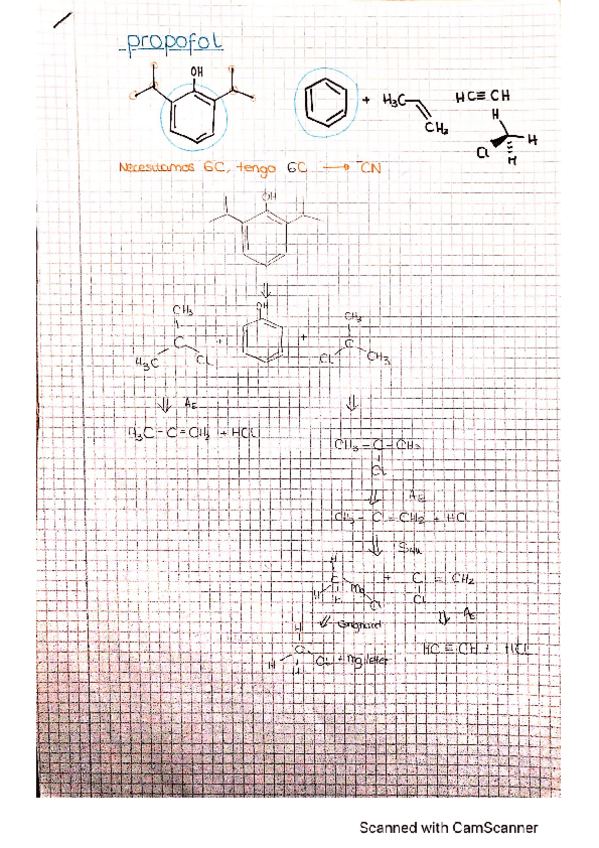 propofol
OH
+ H₃C CH₂ HC≡CH
H
Cl H
H
Necesitamos 6C, tengo 6C → CN
OH
⇓
CH₃ OH CH₃
C + + C
H₃C Cl Cl CH₃
⇓ AE ⇓
H₃C-C=CH₂ + HCl
CH₃-C-CH₃
Cl
⇓ AE
CH₃-C=CH₂ + HCl
⇓
H
C + C = CH₂
H Mg Cl
⇓ AE
HC≡CH + HCl
H
C
H Cl + Mg/eter
H
Scanned with CamScanner